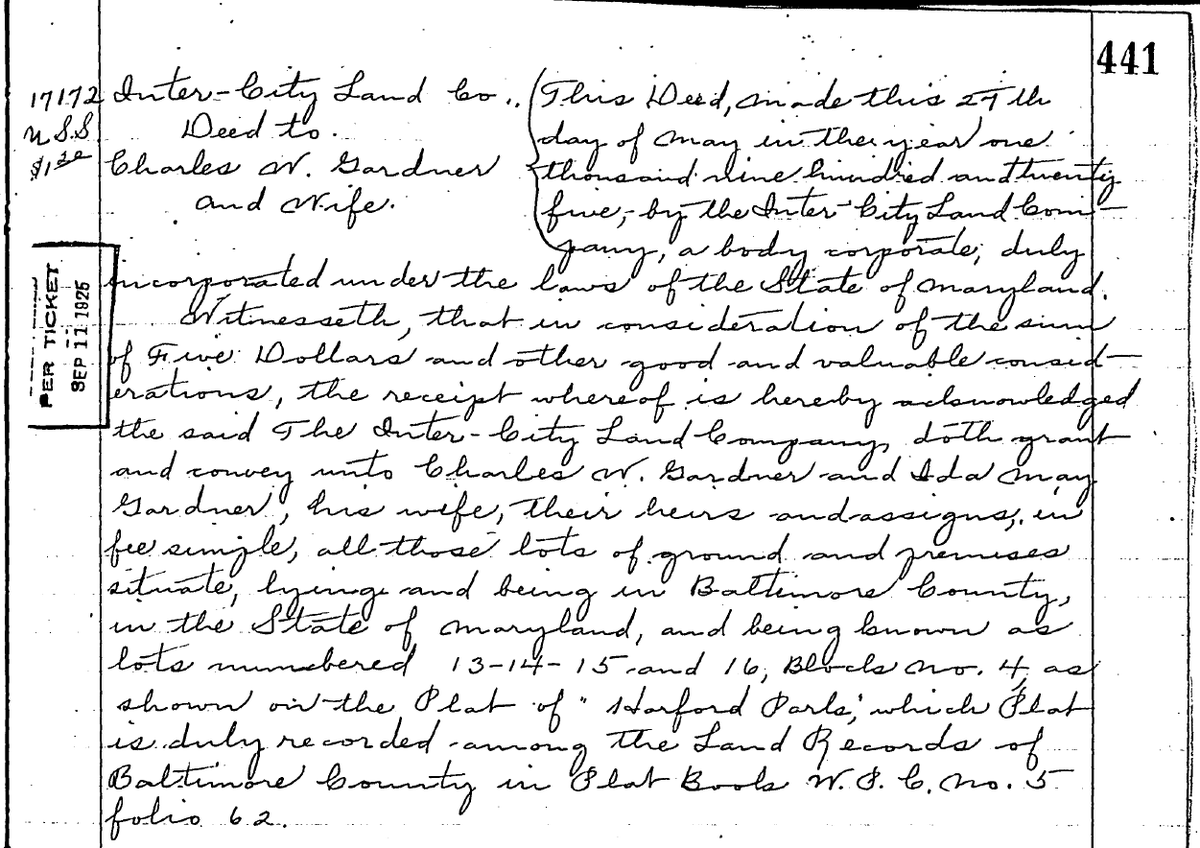 441
17172
U.S.S
$1.50
Inter-City Land Co.,
Deed to.
Charles W. Gardner
and Wife.
This Deed, made this 27th
day of May in the year one
thousand nine hundred and twenty
five, by the Inter-City Land Com-
pany, a body corporate, duly
incorporated under the laws of the State of Maryland.
PER TICKET
SEP 11 1925
Witnesseth, that in consideration of the sum
of Five Dollars and other good and valuable consid-
erations, the receipt whereof is hereby acknowledged
the said The Inter-City Land Company, doth grant
and convey unto Charles W. Gardner and Ida May
Gardner, his wife, their heirs and assigns, in
fee simple, all those lots of ground and premises
situate, lying and being in Baltimore County,
in the State of Maryland, and being known as
lots numbered 13-14-15 and 16, Block No. 4, as
shown on the Plat of "Harford Park," which Plat
is duly recorded among the Land Records of
Baltimore County in Plat Book W. P. C. No. 5
folio 62.